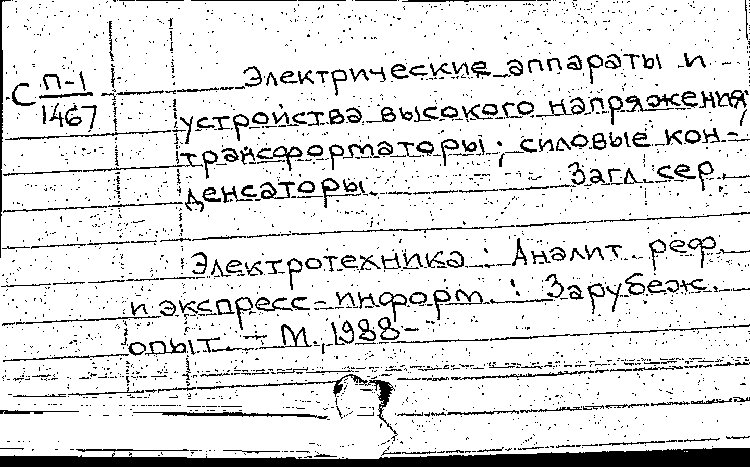 С П-1
1467
Электрические аппараты и
устройства высокого напряжения;
трансформаторы; силовые кон-
денсаторы. Загл. сер.
Электротехника: Аналит. реф.
и экспресс-информ. : Зарубеж.
опыт. - М., 1988-